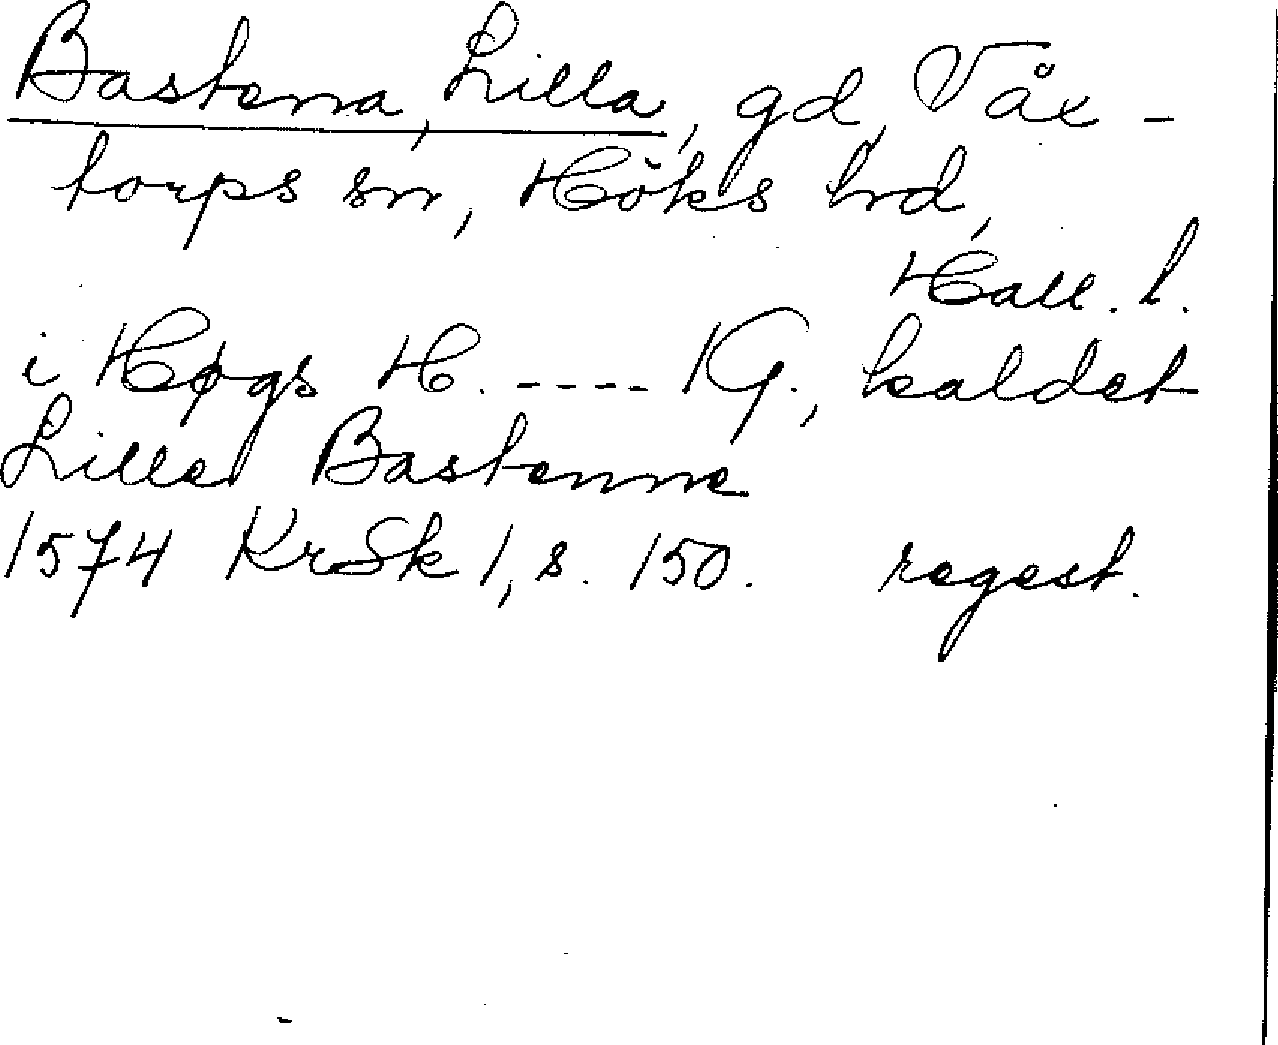 Bastena, Lilla, gd, Våx-
torps sn, Höks hrd,
Hall. l.
i Høgs H. ---- 1 G., kaldet
Lille Bastenne
1574 KrSk 1, s. 150. regest.